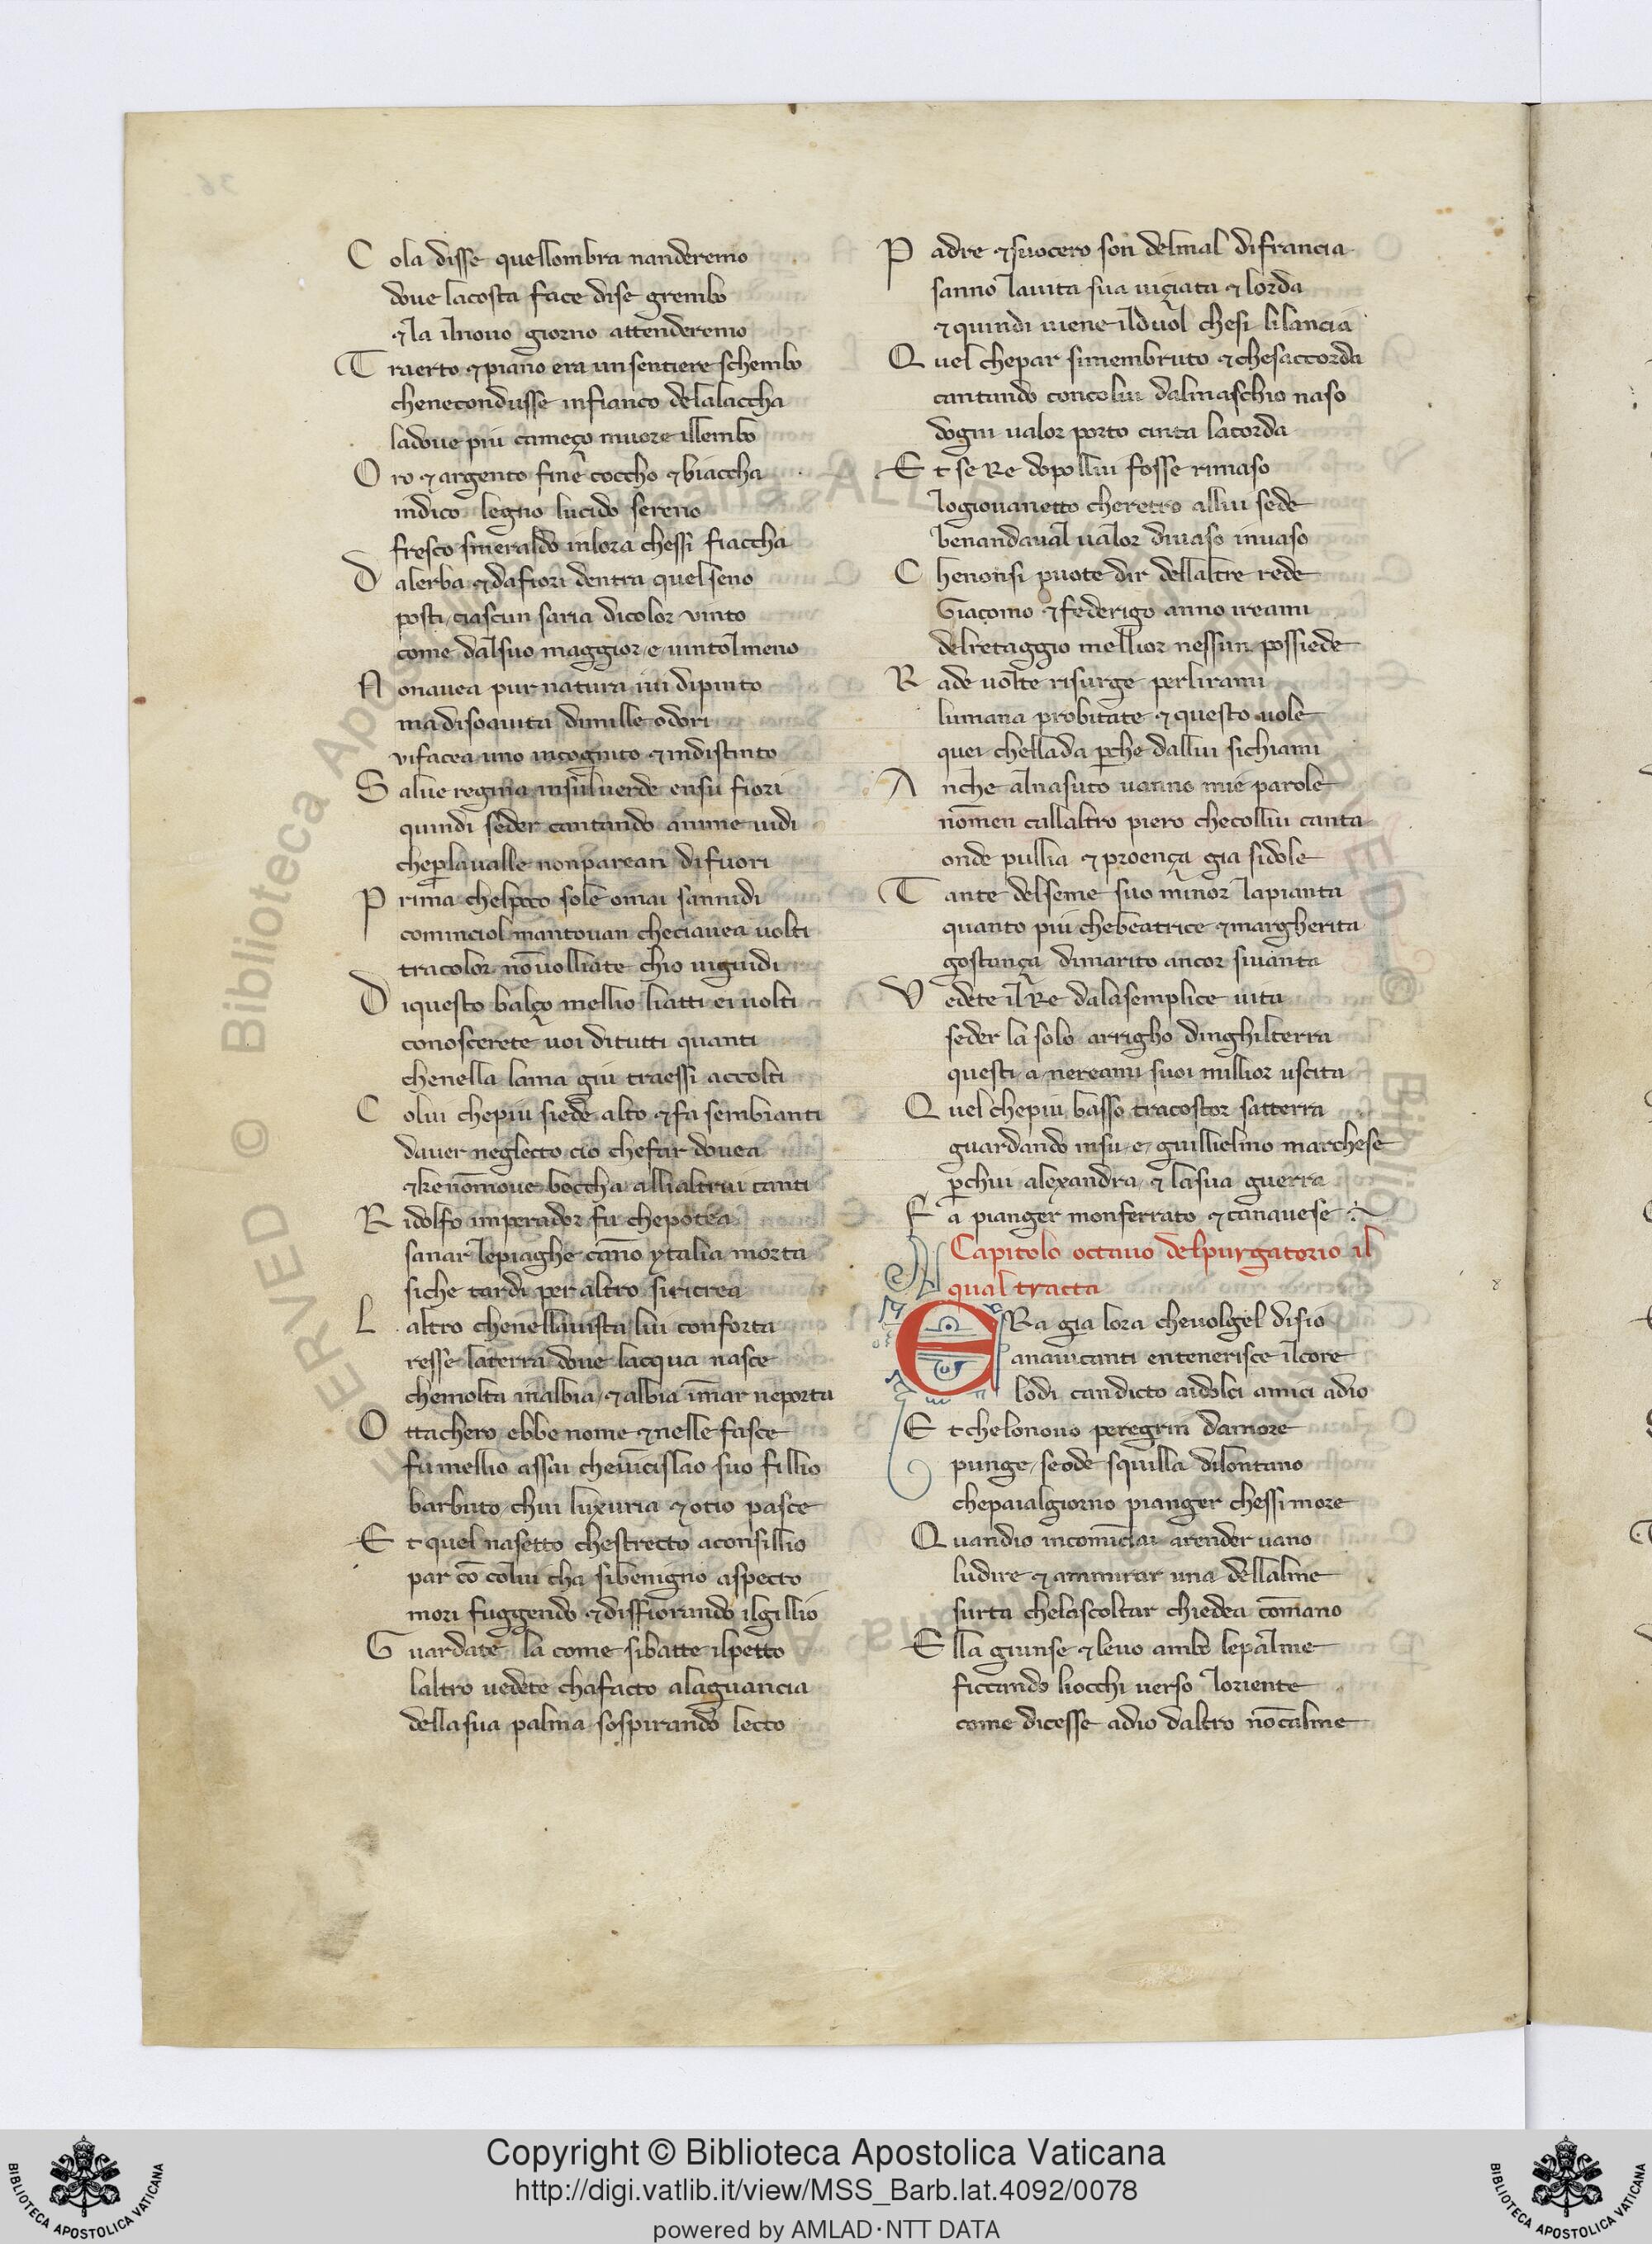 Cola disse quellombra nanderemo
doue lacosta face dise grembo
⁊la ilnouo giorno attenderemo
Traerto ⁊piano era unsentiere schembo
chenecondusse infianco delalaccha
ladoue piu cameço muore illembo
Oro ⁊argento fine coccho ⁊biaccha
indico legno lucido sereno
fresco smeraldo inlora chessi fiaccha
Dalerba ⁊dafiori dentra quelseno
posti ciascun saria dicolor vinto
come dalsuo maggior e uintolmeno
Nonauea pur natura iui dipinto
madisoauita dimille odori
vifacea uno incognito ⁊indistinto
Salue regina insuluerde ensu fiori
quindi seder cantando anime uidi
cheꝑlaualle nonparean difuori
Prima chelpoco sole omai sannidi
cominciol mantouan checiauea uolti
tracolor nōuolliate chio uiguidi
Diquesto balço mellio liatti ei uolti
conoscerete uoi ditutti quanti
chenella lama giu traessi accolti
Colui chepiu siede alto ⁊fa sembianti
dauer neglecto cio chefar douea
⁊kenōmoue boccha alli altrui canti
Ridolfo imperador fu chepotea
sanar lepiaghe cānno ytalia morta
siche tardi per altro siricrea
Laltro chenellauista lui conforta
resse laterra doue lacqua nasce
chemolta inalbia ⁊albia īmar neporta
Ottachero ebbe nome ⁊nelle fasce
fu mellio assai cheuīcislao suo fillio
barbuto chui luxuria ⁊otio pasce
Et quel nasetto chestrecto aconsillio
par cō colui cha sibenigno aspecto
mori fuggendo ⁊disfiorando ilgillio
Guardate la come sibatte ilpetto
laltro uedete chafacto alaguancia
dellasua palma sospirando lecto
Padre ⁊suocero son delmal difrancia
sanno lauita sua uiçiata ⁊lorda
⁊quindi uiene ilduol chesi lilancia
Quel chepar simembruto ⁊chesaccorda
cantando concolui dalmaschio naso
dogni ualor porto cinta lacorda
Et se Re dopollui fosse rimaso
logiouanetto cheretro allui sede
benandaual ualor diuaso inuaso
Chenonsi puote dir dellaltre rede
Giacomo ⁊federigo anno ireami
delretaggio mellior nessun possiede
Rade uolte risurge perlirami
lumana probitate ⁊questo uole
quei chellada ꝑche dallui sichiami
Anche alnasuto uanno mie parole
nōmen callaltro piero checollui canta
onde pullia ⁊proença gia sidole
Tante delseme suo minor lapianta
quanto piu chebeatrice ⁊margherita
gostança dimarito ancor siuanta
Vedete il Re dalasemplice uita
seder la solo arrigho dinghilterra
questi a nereami suoi millior uscita
Quel chepiu basso tracostor satterra
guardando insu e guillielmo marchese
ꝑchui alexandra ⁊ lasua guerra
Fa pianger monferrato ⁊canauese
Capitolo octauo delpurgatorio il
qual tracta
ERa gia lora cheuolgel disio
anauicanti entenerisce ilcore
lodi candicto aidolci amici adio
Et chelonouo peregrin damore
punge seode squilla dilontano
chepaialgiorno pianger chessi more
Quandio incomīciai arender uano
ludire ⁊amirar una dellalme
surta chelascoltar chiedea cōmano
Ella giunse ⁊leuo ambo lepalme
ficcando liocchi uerso loriente
come dicesse adio daltro nōcalme
Copyright © Biblioteca Apostolica Vaticana
http://digi.vatlib.it/view/MSS_Barb.lat.4092/0078
powered by AMLAD·NTT DATA